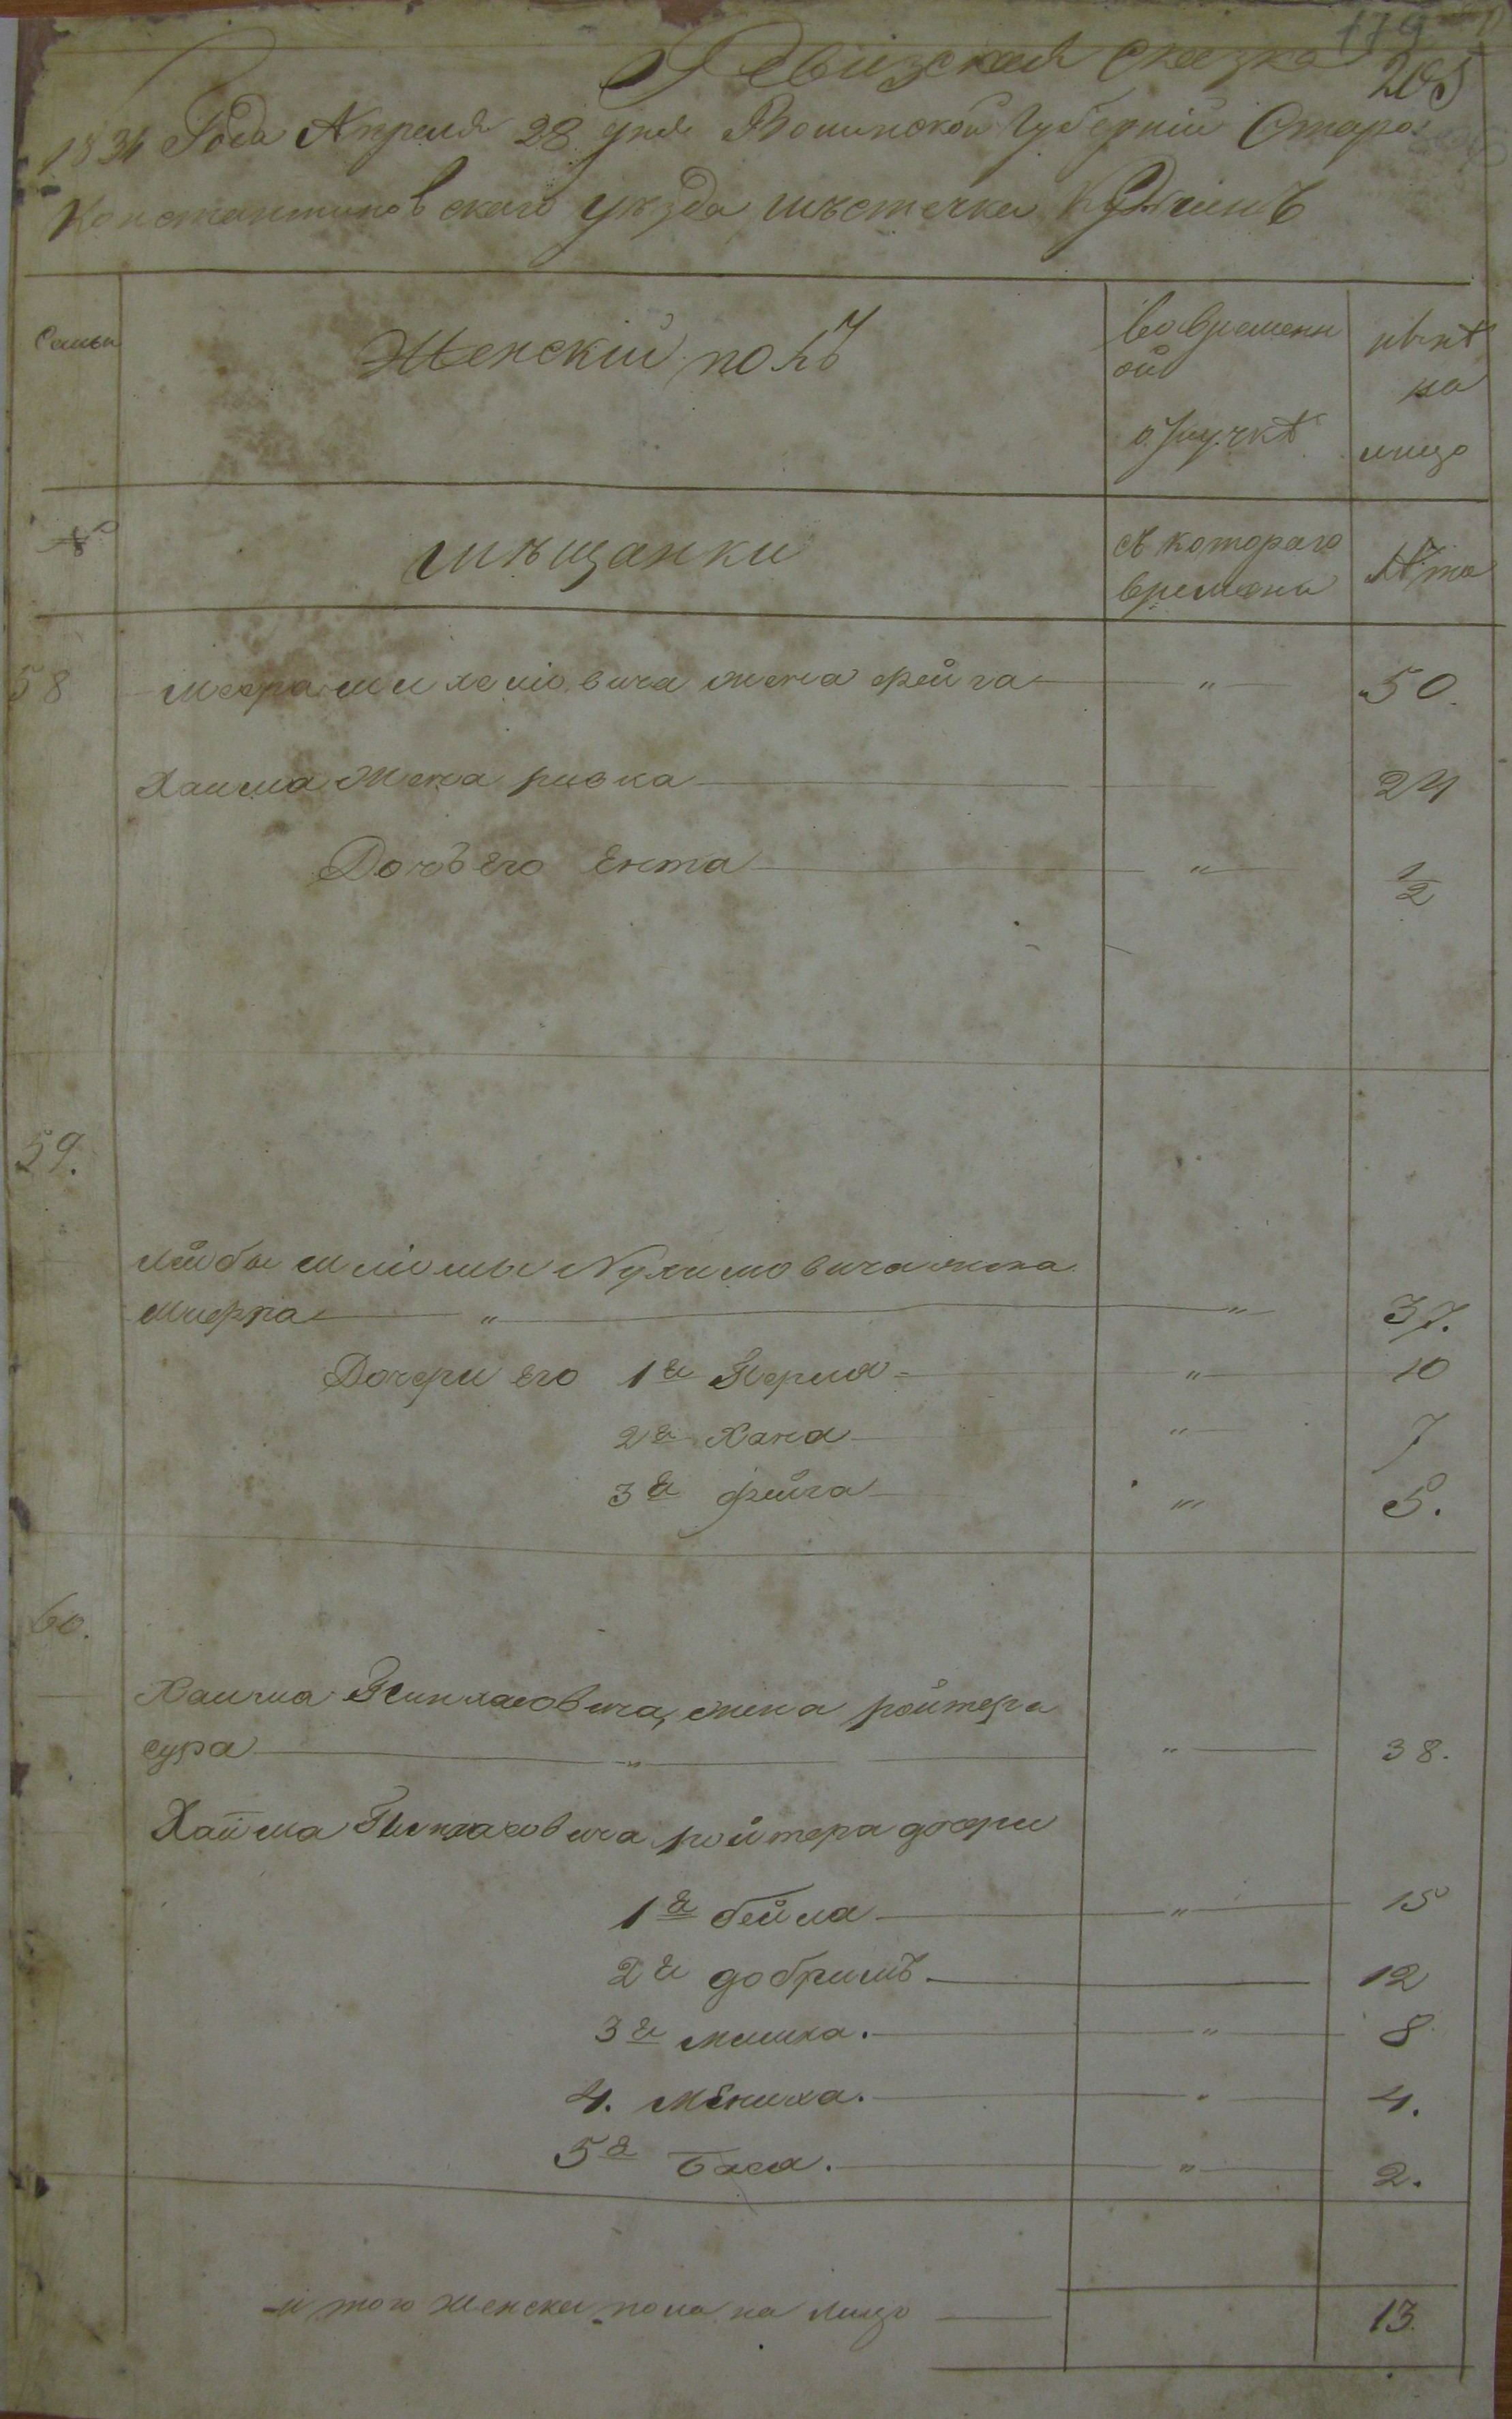 179
Ревизская сказка
205
1834 Года Апреля 28 дня Волинской Губернии Старо
Константиновского уезда местечка Кузмин
Семьи
Женскій полъ
во временн
ой
отлучкѣ
нынѣ
на
лицо
№
мѣщанки
съ котораго
времени
Лѣта
58
Меера шмилеліовича жена фейга " 50.
Хаима Жена ривка 24
Дочь Его Ента " 1/2
59.
Лейбы шліомы Нухимовича жена
Мирра " " 37.
Дочери Его 1я Перля " 10
2я Хана " 7
3я фейга " 5.
60.
Хаима Пинхасовича, жена ройтера
сура " " 38.
Хаима Пинхасовича ройтера дочери
1я бейла " 15
2я добришъ. 12
3я малка. " 8
4. Мениха. " 4.
5я Бася. " 2.
итого женска пола на лицо 13